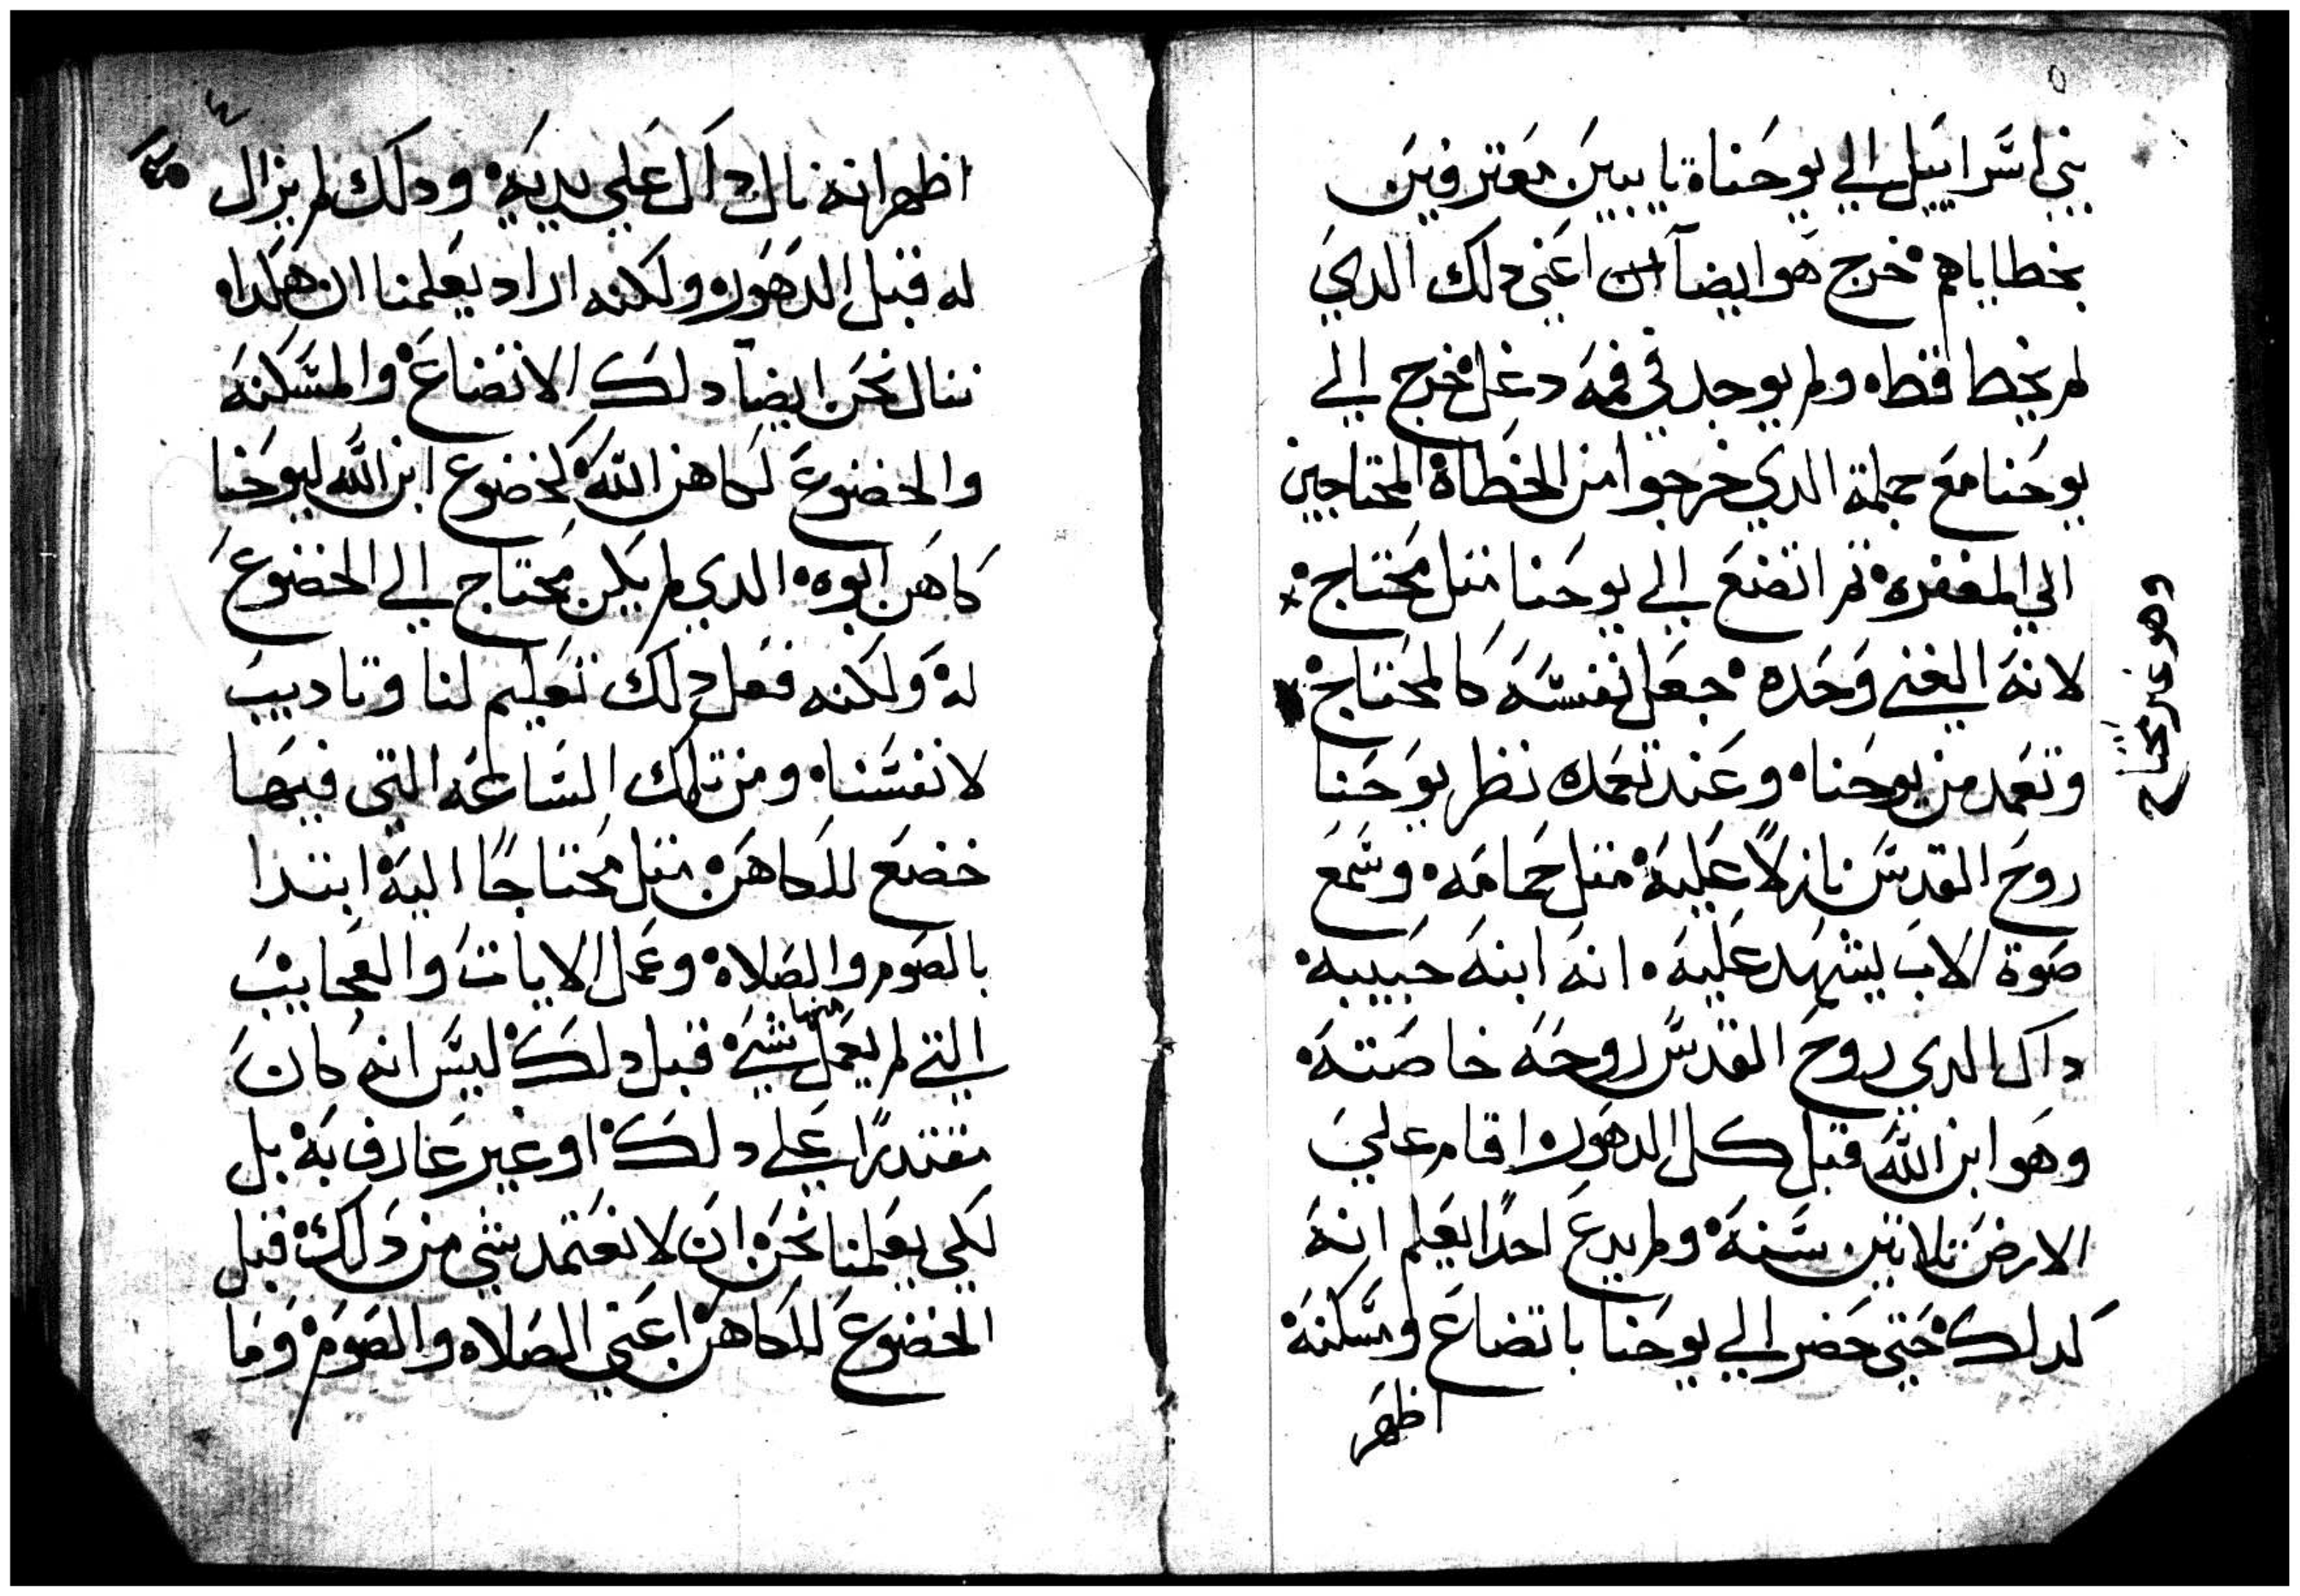 بني اسرايل الي يوحناة تايبين معترفين
بخطاياهم خرج هو ايضا اعني دلك الدي
لم يخطا قط ولم يوجد في فمه دغل خرج الي
يوحنا مع جملة الدي خرجوا من الخطاة المحتاجين
الي المغفره تم اتضع الي يوحنا متل محتاج
وهو غير محتاج
لانه الغني وحده جعل نفسه كالمحتاج
وتعمد من يوحنا وعند تعمده نظر يوحنا
روح القدس نازلاً عليه متل حمامه وسمع
صوة الاب يشهد عليه انه ابنه حبيبه
داك الدي روح القدس روحه خاصته
وهو ابن الله قبل كل الدهور اقام علي
الارض تلاتين سنه ولم يدع احدًا يعلم انه
كدلك حتي حضر الي يوحنا باتضاع ومسكنه
اظهر
اظهر انه نال داك علي يديه ودلك لم يزال
له قبل الدهور ولكنه اراد يعلمنا ان هكدا
ننال نحن ايضا دلك الاتضاع والمسكنه
والخضوع لكاهن الله كخضوع ابن الله ليوحنا
كاهن ابوه الدي لم يكن محتاج الي الخضوع
له ولكنه فعل دلك تعليم لنا وتاديب
لانفسنا ومن تلك الساعه التي فيها
خضع للكاهن متل محتاجًا اليه ابتدا
بالصوم والصلاه وعمل الايات والعجايب
التي لم يعمل منها شي قبل دلك ليس انه كان
مقتدرًا علي دلك او غير عارف به بل
لكي يعلمنا نحن ان لا نعتمد شي من دلك قبل
الخضوع للكاهن اعني الصلاه والصوم وما